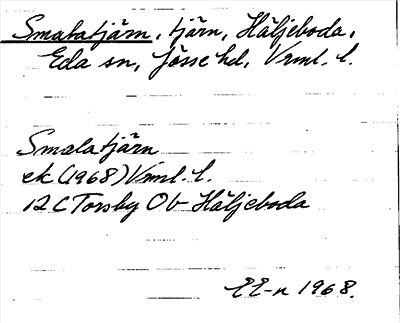 Smalatjärn, tjärn, Häljeboda,
Eda sn, Jösse hd, Vrml. l.
Smalatjärn
ek (1968) Vrml. l.
12 C Torsby 0 b Häljeboda
EE-n 1968.